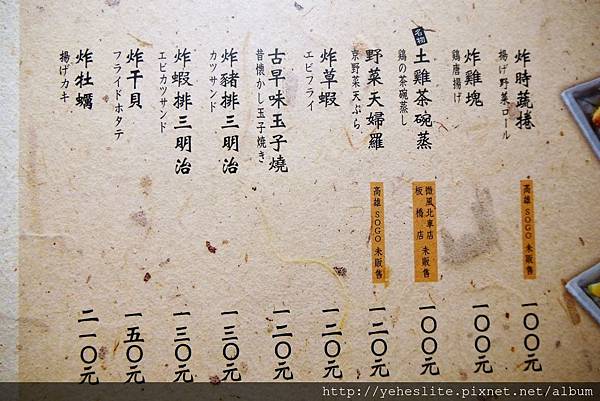 炸時蔬捲
揚げ野菜ロール
高雄 SOGO 未販售
一〇〇元
炸雞塊
鶏唐揚げ
一〇〇元
名物
土雞茶碗蒸
鶏の茶碗蒸し
微風北車店
板橋店
未販售
一〇〇元
野菜天婦羅
京野菜天ぷら
高雄 SOGO 未販售
一二〇元
炸草蝦
エビフライ
一二〇元
古早味玉子燒
昔懐かし玉子焼き
一二〇元
炸豬排三明治
カツサンド
一三〇元
炸蝦排三明治
エビカツサンド
一三〇元
炸干貝
フライドホタテ
一五〇元
炸牡蠣
揚げカキ
二一〇元
http://yeheslite.pixnet.net/album